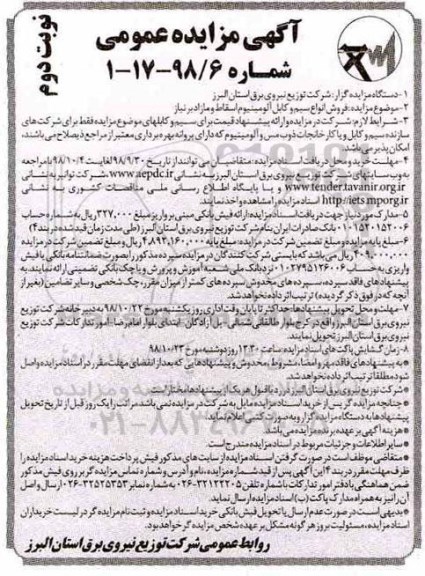 نوبت دوم
آگهی مزایده عمومی
شماره ۹۸/۶-۱۷-۱
۱-دستگاه مزایده گزار: شرکت توزیع نیروی برق استان البرز
۲-موضوع مزایده: فروش انواع سیم و کابل آلومینیوم اسقاط و مازاد بر نیاز
۳-شرایط لازم: شرکت در مزایده و ارائه پیشنهاد قیمت برای سیم و کابلهای موضوع مزایده فقط برای شرکت های
سازنده سیم و کابل و یا کارخانجات ذوب مس و آلومینیوم که دارای پروانه بهره برداری معتبر از مراجع ذیصلاح می باشند،
امکان پذیر می باشد.
۴-مهلت خرید و محل دریافت اسناد مزایده: متقاضیان می توانند از تاریخ ۹۸/۹/۳۰ لغایت ۹۸/۱۰/۴ با مراجعه
به وب سایتهای شرکت توزیع نیروی برق استان البرز به نشانی www.aepdc.ir، شرکت توانیر به نشانی
www.tender.tavanir.org.ir و یا پایگاه اطلاع رسانی ملی مناقصات کشوری به نشانی
http://iets.mporg.ir اسناد مزایده را مشاهده و اخذ نمایند.
۵-مدارک مورد نیاز جهت دریافت اسناد مزایده: ارائه فیش بانکی مبنی بر واریز مبلغ ۳۲۷,۰۰۰ ریال به شماره حساب
بانک صادرات ایران بنام شرکت توزیع نیروی برق استان البرز (طی مدت زمان قید شده در بند ۴)
۶-مبلغ پایه مزایده و مبلغ تضمین شرکت در مزایده: مبلغ پایه ۴,۸۹۳,۱۶۰,۰۰۰ ریال و مبلغ تضمین شرکت در مزایده
ریال می باشد که بایستی شرکت کنندگان در مزایده سپرده مذکور را بصورت ضمانتنامه بانکی یا فیش
واریزی به حساب نزد بانک ملی شعبه آموزش و پرورش و یا چک بانکی تضمینی ارائه نمایند. به
پیشنهادهای فاقد سپرده، سپرده های مخدوش، سپرده های کمتر از میزان مقرر، چک شخصی و سایر تضامین (بغیر از
آنچه که در فوق ذکر گردیده) ترتیب اثر داده نخواهد شد.
۷-مهلت و محل تحویل پیشنهادها: حداکثر تا پایان وقت اداری روز یکشنبه مورخ ۹۸/۱۰/۲۲ به دبیرخانه شرکت توزیع
نیروی برق استان البرز واقع در کرج-بلوار طالقانی شمالی-پل آزادگان-ابتدای بلوار امام رضا-امور تدارکات شرکت توزیع
نیروی برق استان البرز تحویل نمایند.
۸-زمان گشایش پاکت های اسناد مزایده: ساعت ۱۳:۳۰ روز دوشنبه مورخ ۹۸/۱۰/۲۳
*به پیشنهادهای فاقد مهر و امضاء، مشروط، مخدوش و پیشنهادهایی که بعد از انقضای مهلت مقرر در اسناد مزایده واصل
شود مطلقا ترتیب اثر داده نخواهد شد.
*شرکت توزیع نیروی برق استان البرز در رد یا قبول هر یک از پیشنهادها مختار است.
*چنانچه مزایده گر پس از خرید اسناد مزایده مایل به شرکت در مزایده نمی باشد مراتب را یک روز قبل از تاریخ تحویل
پیشنهادها به دستگاه مزایده گزار و به صورت کتبی اعلام نماید.
*هزینه آگهی بر عهده برنده مزایده می باشد.
*سایر اطلاعات و جزئیات مربوط در اسناد مزایده مندرج است.
*متقاضی موظف است در صورت گرفتن اسناد مزایده از سایت های مذکور فیش پرداخت هزینه خرید اسناد مزایده را
ظرف مهلت مقرر در بند ۴ این آگهی پس از قید شماره مزایده، نام و آدرس و شماره تماس مزایده گر بر روی فیش مذکور
ضمن هماهنگی با دفتر امور تدارکات با شماره تلفن ۳۲۱۲۲۲۰۵-۰۲۶ به شماره نمابر ۳۲۵۲۵۳۵۳-۰۲۶ ارسال و اصل
آن را نیز به همراه مدارک پاکت (ب) اسناد مزایده ارسال نماید.
*بدیهی است در صورت عدم ارسال یا تحویل فیش بانکی خرید اسناد مزایده و ثبت نام مزایده گر در لیست خریداران
اسناد مزایده، مسئولیت بروز هر گونه مشکل بر عهده شخص مزایده گر خواهد بود.
روابط عمومی شرکت توزیع نیروی برق استان البرز